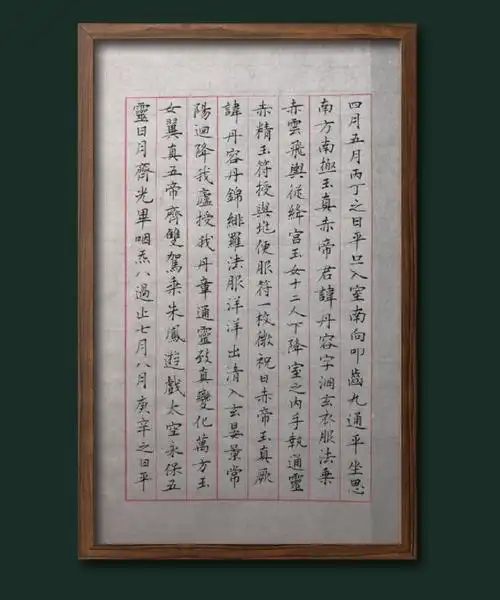 四月五月丙丁之日平旦入室南向叩齒九通平坐思
南方南極玉真赤帝君諱丹容字洞玄衣服法乘
赤雲飛輿從絳宮玉女十二人下降室之內手執通靈
赤精玉符授與便服符一枚微祝曰赤帝玉真厥
諱丹容丹錦緋羅法服洋洋出清入玄晏景常
陽迴降我廬授我丹章通靈致真變化萬方玉
女翼真五帝齊雙駕乘朱鳳遊戲太空永保五
靈日月齊光畢咽炁八過止七月八月庚辛之日平